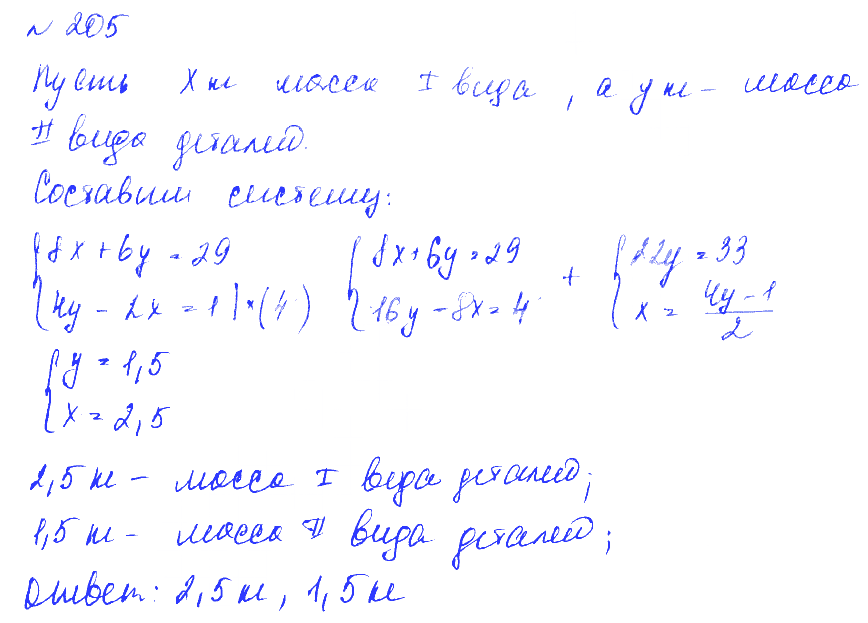 № 205
Пусть х кг масса I вида, а у кг – масса
II вида деталей.
Составим систему:
{8x + 6y = 29 {8x + 6y = 29 + {22y = 33
{4y – 2x = 1 | * (4) {16y – 8x = 4 {x = (4y – 1)/2
{y = 1,5
{x = 2,5
2,5 кг – масса I вида деталей;
1,5 кг – масса II вида деталей;
Ответ: 2,5 кг, 1,5 кг